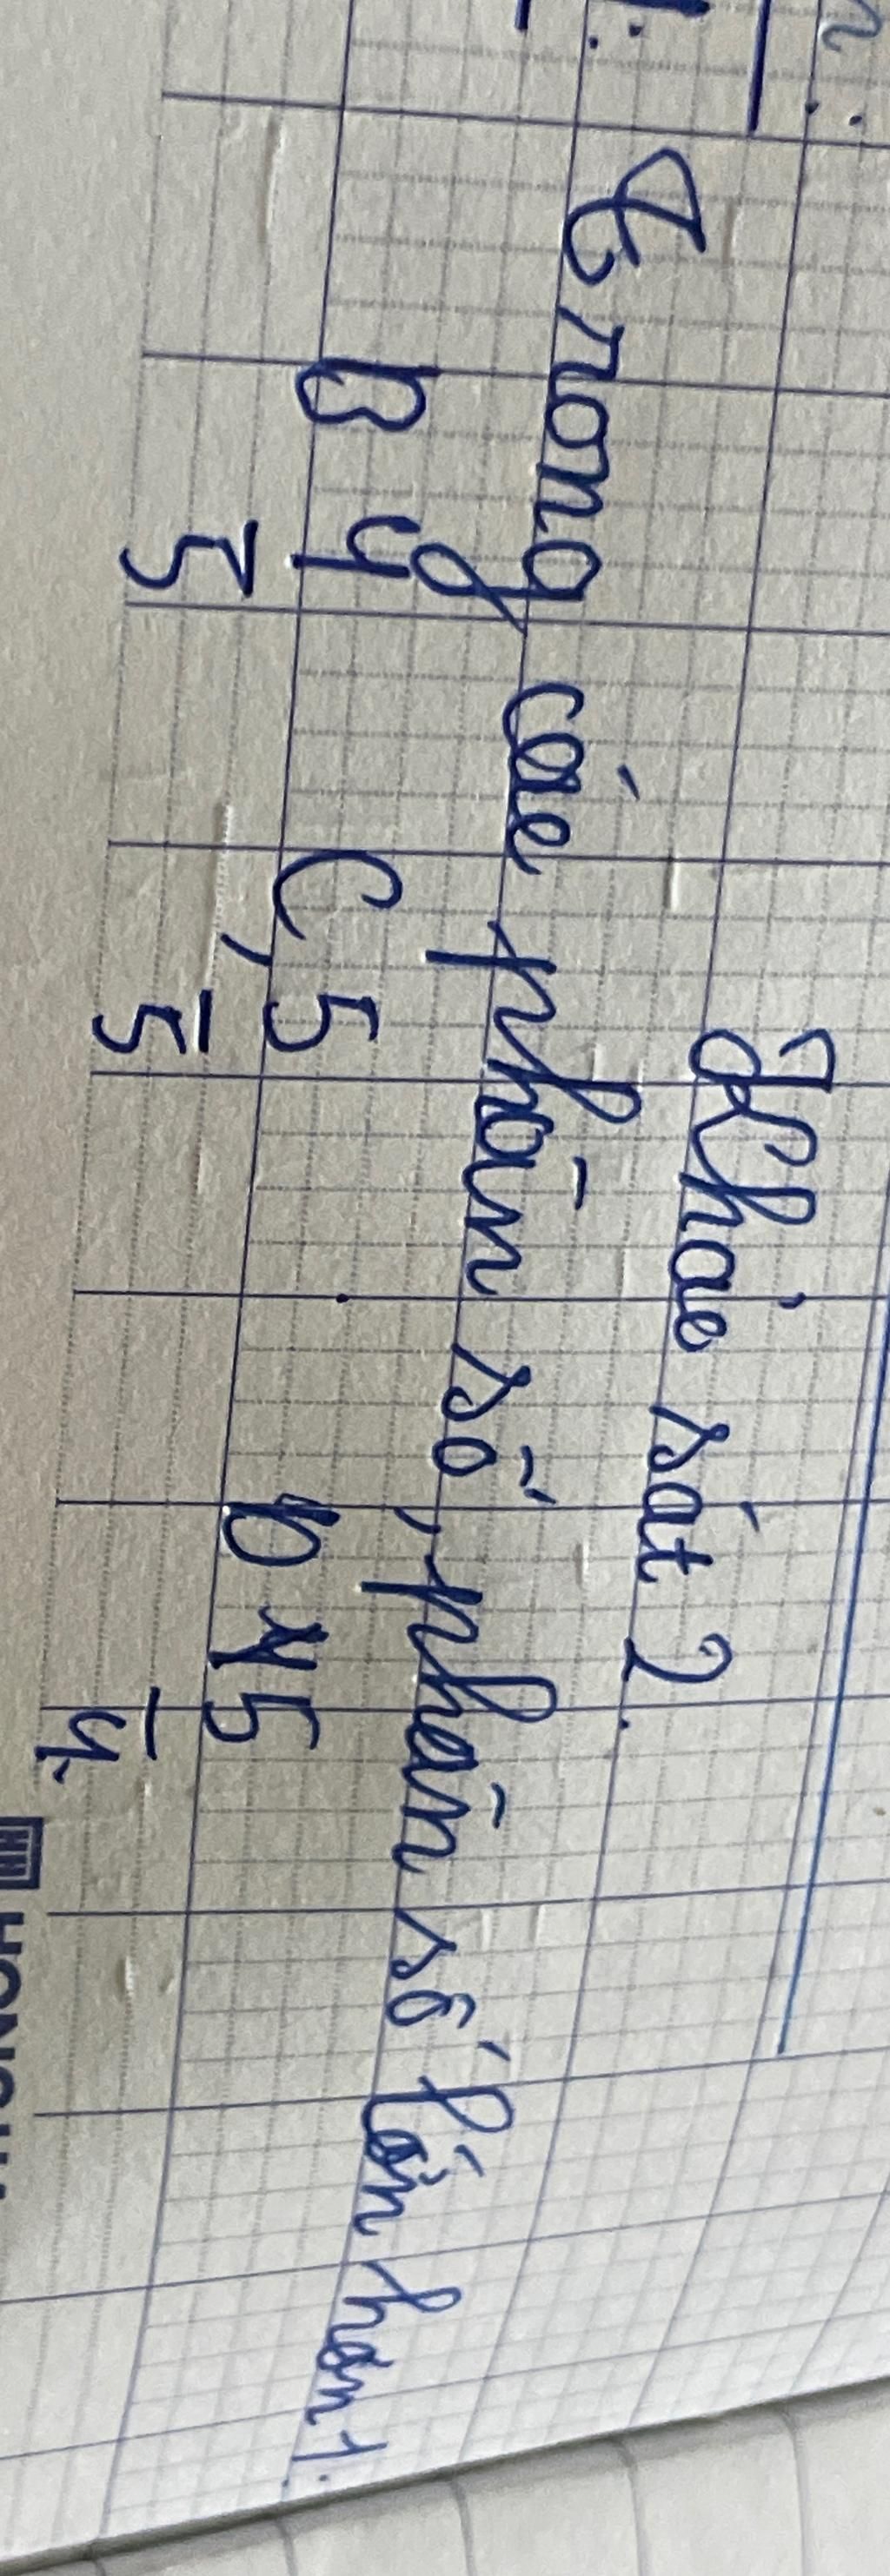 Khảo sát 2.
Trong các phân số, phân số lớn hơn 1:
B 4/5 C, 5/5 D 5/4